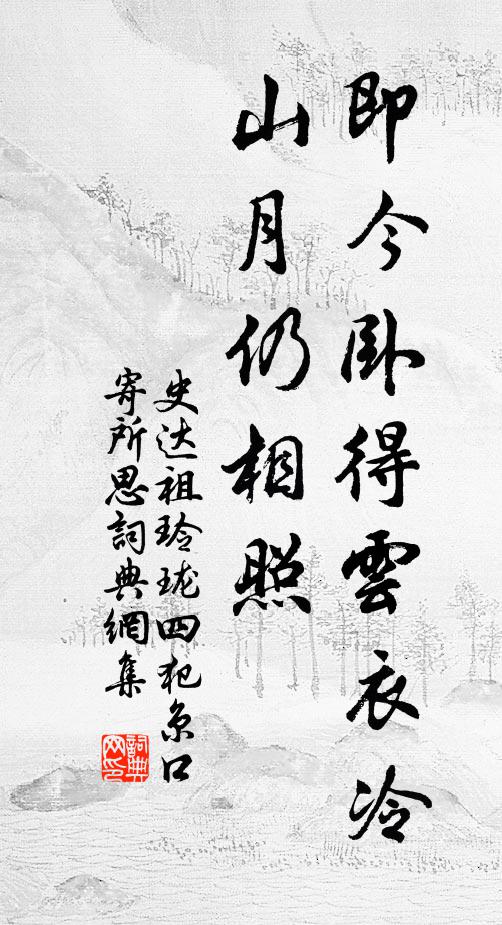 即今卧得雲衣冷
山月仍相照
史达祖玲珑四犯京口
寄所思詞典網集
詞典網印